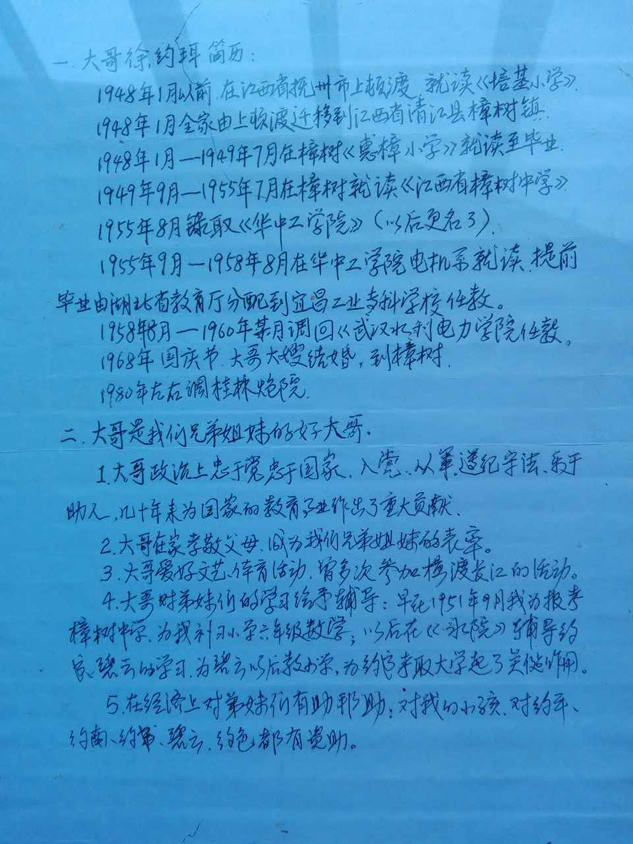 一.大哥徐约珥简历:
1948年1月以前.在江西省抚州市上顿渡 就读《培基小学》.
1948年1月全家由上顿渡迁移到江西省清江县樟树镇.
1948年1月—1949年7月在樟树《惠樟小学》就读至毕业.
1949年9月—1955年7月在樟树就读《江西省樟树中学》
1955年8月录取《华中工学院》(以后更名了).
1955年9月—1958年8月在华中工学院电机系就读.提前
毕业由湖北省教育厅分配到宜昌工业专科学校任教。
1958年8月—1960年某月调回《武汉水利电力学院任教。
1968年国庆节.大哥大嫂结婚,到樟树.
1980年左右调桂林炮院.
二.大哥是我们兄弟姐妹的好大哥.
1.大哥政治上忠于党忠于国家.入党、从军.遵纪守法、乐于
助人,几十年来为国家的教育事业作出了重大贡献.
2.大哥在家孝敬父母.成为我们兄弟姐妹的表率。
3.大哥爱好文艺、体育活动,曾多次参加横渡长江的活动。
4.大哥对弟妹们的学习给予辅导:早在1951年9月我为报考
樟树中学.为我补习小学六年级数学;以后在《水院》辅导约
碧云的学习.为碧云以后教小学,为约 考取大学起了关键作用。
5.在经济上对弟妹们有助邦助:对我的小孩.对约平、
约南、约 、碧云、约 都有资助。